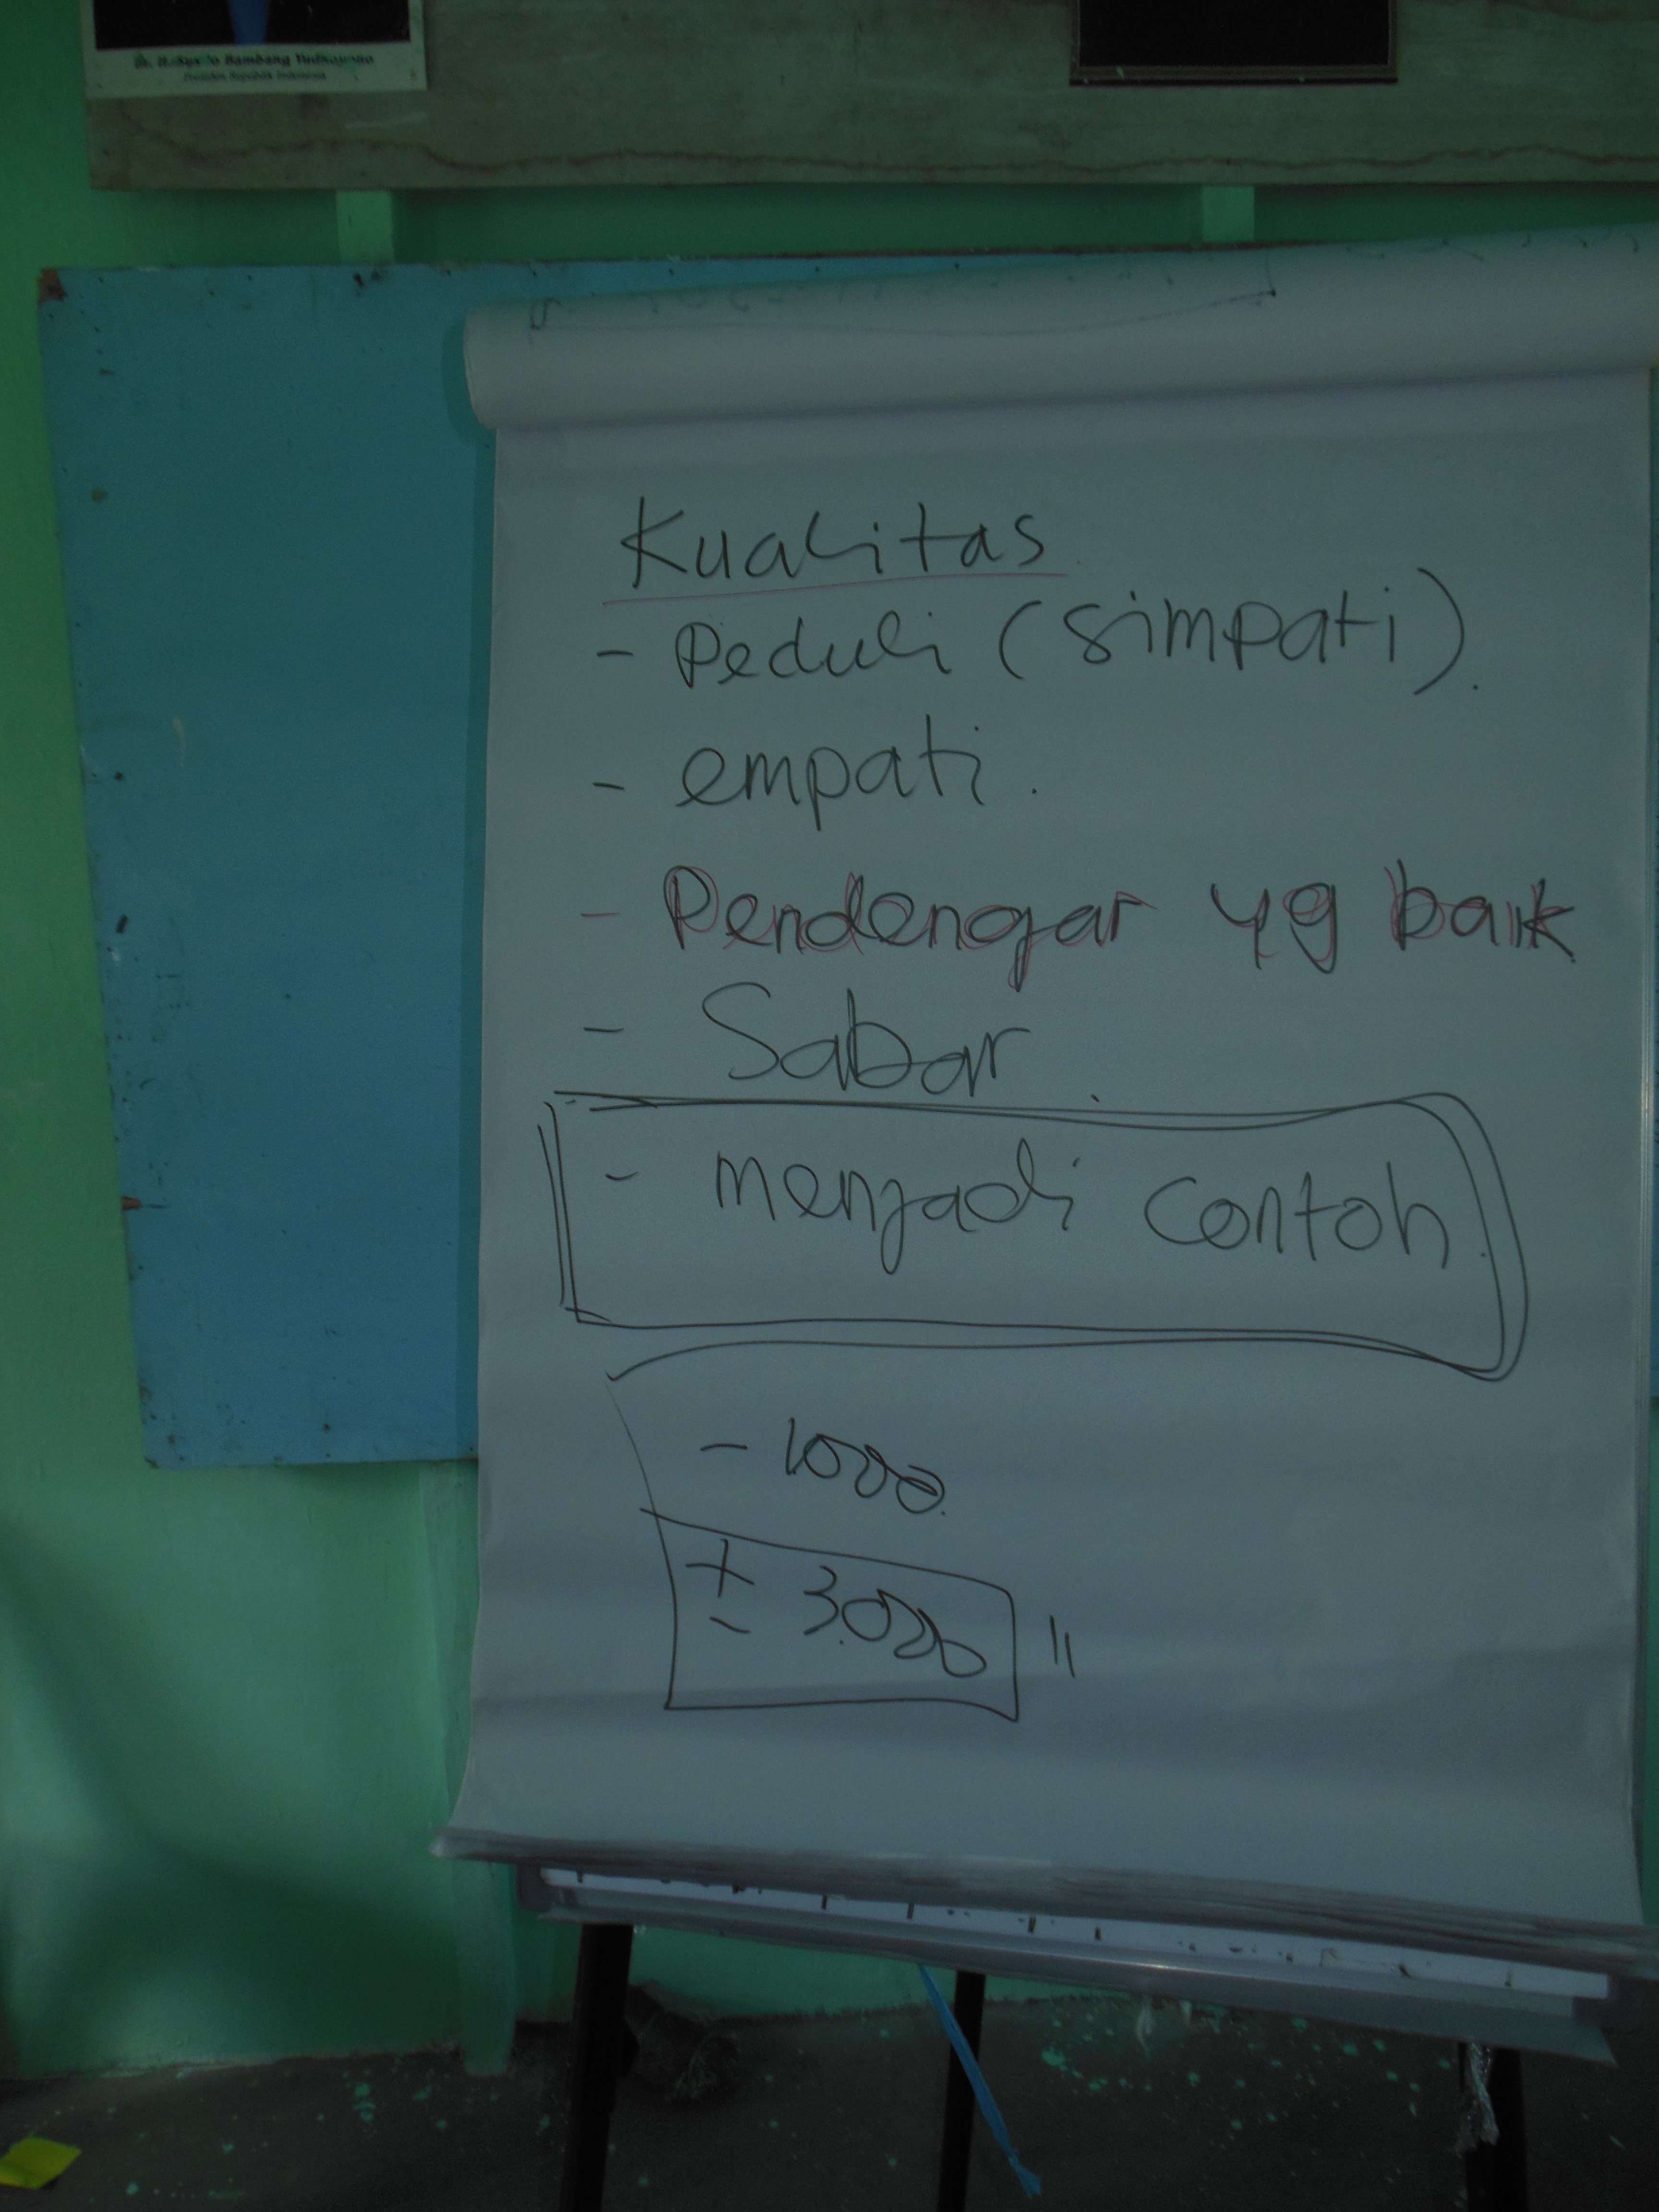 Bambang Yudhoyono
Presiden Republik Indonesia
Kualitas
- Peduli (simpati).
- empati.
- Pendengar yg baik
- Sabar.
- menjadi contoh.
- 1000.
± 3.000 "